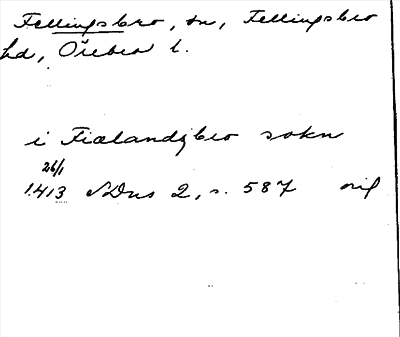 Fellingsbro, sn, Fellingsbro
hd, Örebro l.
i Fiælandzbro sokn
26/1
1413 SDns 2, s. 587 orig